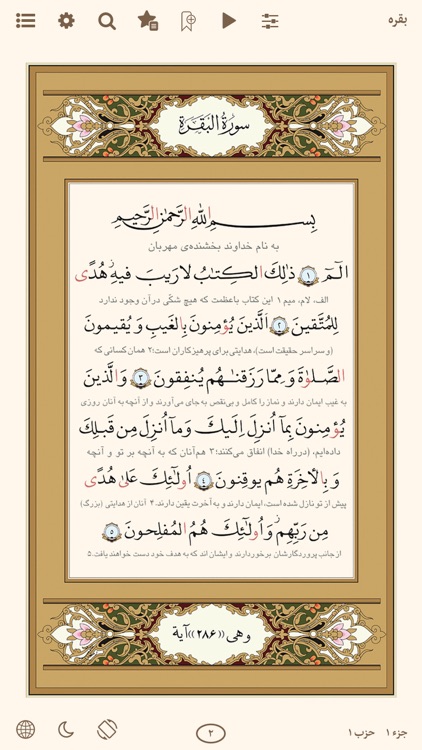 بقره
سورة البقرة
بسم الله الرحمن الرحيم
به نام خداوند بخشنده‌ی مهربان
الٓمٓ ١ ذٰلِكَ الكِتٰبُ لا رَيبَ فيهِ هُدًى
الف، لام، میم ۱ این کتاب باعظمت که هیچ شکّی درآن وجود ندارد
لِلمُتَّقينَ ٢ اَلَّذينَ يُؤمِنونَ بِالغَيبِ وَ يُقيمونَ
(وسراسر حقیقت است)، هدایتی برای پرهیزکاران است؛۲ همان کسانی که
الصَّلوٰةَ وَ مِمّا رَزَقنٰهُم يُنفِقونَ ٣ وَالَّذينَ
به غیب ایمان دارند و نماز را کامل و بی‌نقص به جای می‌آورند و از آنچه به آنان روزی
يُؤمِنونَ بِمآ اُنزِلَ اِلَيكَ وَمآ اُنزِلَ مِن قَبلِكَ
داده‌ایم، (درراه خدا) انفاق می‌کنند؛۳ هم‌آنان که به آنچه بر تو و آنچه
وَ بِالأخِرَةِ هُم يوقِنونَ ٤ اُولٰٓئِكَ عَلىٰ هُدًى
پیش از تو نازل شده است، ایمان دارند و به آخرت یقین دارند.۴ آنان از هدایتی (بزرگ)
مِن رَبِّهِم وَ اُولٰٓئِكَ هُمُ المُفلِحونَ ٥
ازجانب پروردگارشان برخوردارند و ایشان اند که به هدف خود دست خواهند یافت.۵
وهی «۲۸۶» آیة
۲
جزء ۱ حزب ۱